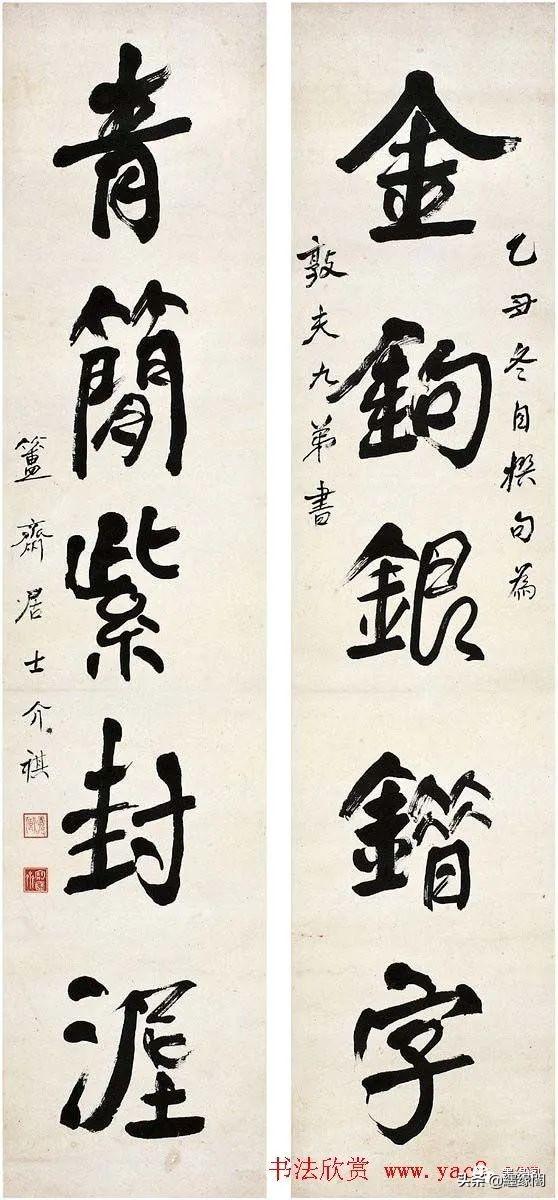 乙丑冬自撰句為
金鉤銀鐕字
敦夫九弟書
青簡紫封埿
簠齋居士介祺
书法欣赏 www.yac8
头条